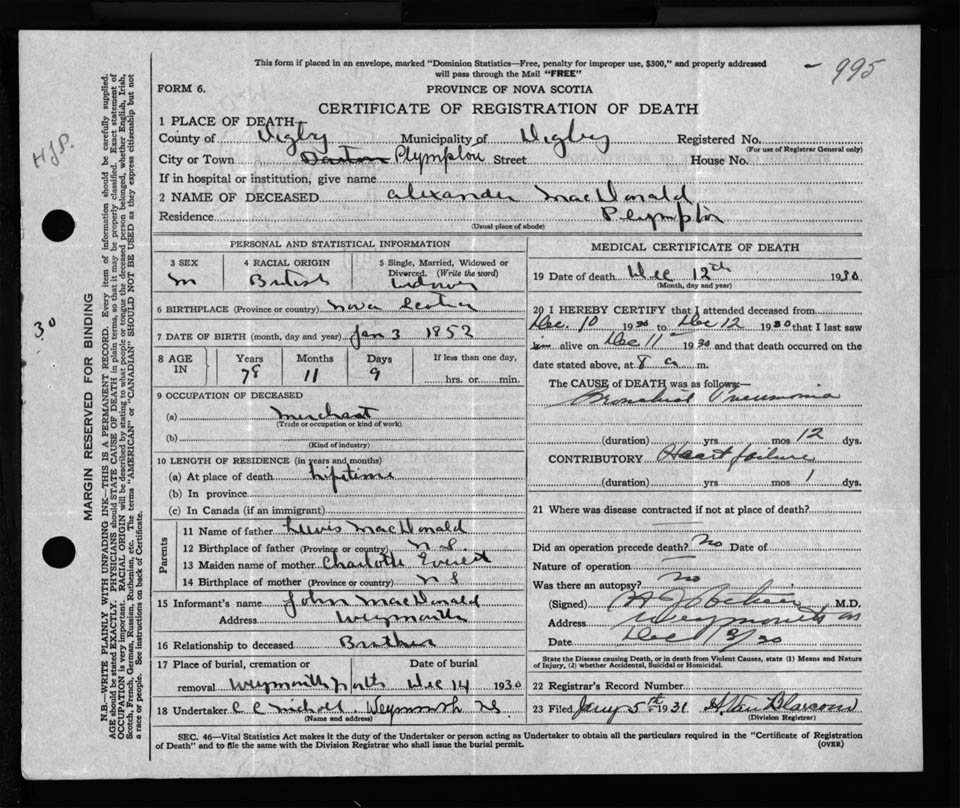 This form if placed in an envelope, marked "Dominion Statistics—Free, penalty for improper use, $300," and properly addressed
will pass through the Mail "FREE"
- 995
FORM 6.
PROVINCE OF NOVA SCOTIA
CERTIFICATE OF REGISTRATION OF DEATH
1 PLACE OF DEATH
County of Digby Municipality of Digby Registered No.
(For use of Registrar General only)
City or Town Plympton Street House No.
If in hospital or institution, give name
2 NAME OF DECEASED Alexander MacDonald
Residence Plympton
(Usual place of abode)
PERSONAL AND STATISTICAL INFORMATION
3 SEX
M
4 RACIAL ORIGIN
British
5 Single, Married, Widowed or
Divorced. (Write the word)
Widower
6 BIRTHPLACE (Province or country) Nova Scotia
7 DATE OF BIRTH (month, day and year) Jan 3 1852
8 AGE IN
Years Months Days If less than one day,
78 11 9 hrs. or min.
9 OCCUPATION OF DECEASED
(a) Merchant
(Trade or occupation or kind of work)
(b)
(Kind of industry)
10 LENGTH OF RESIDENCE (in years and months)
(a) At place of death Lifetime
(b) In province
(c) In Canada (if an immigrant)
Parents
11 Name of father Lewis MacDonald
12 Birthplace of father (Province or country) N S
13 Maiden name of mother Charlotte Everett
14 Birthplace of mother (Province or country) N S
15 Informant's name John MacDonald
Address Weymouth
16 Relationship to deceased Brother
17 Place of burial, cremation or Date of burial
removal Weymouth North Dec 14 1930
18 Undertaker C C Nichols Weymouth NS
(Name and address)
MEDICAL CERTIFICATE OF DEATH
19 Date of death Dec 12th 1930
(Month, day and year)
20 I HEREBY CERTIFY that I attended deceased from
Dec. 10 1930 to Dec 12 1930 that I last saw
alive on Dec 11 1930 and that death occurred on the
date stated above, at 8 a m.
The CAUSE OF DEATH was as follows:—
Bronchial Pneumonia
(duration) yrs mos 12 dys.
CONTRIBUTORY Heart failure
(duration) yrs mos 1 dys.
21 Where was disease contracted if not at place of death?
Did an operation precede death? No Date of
Nature of operation —
Was there an autopsy? No
(Signed) M.D.
Address Weymouth
Date Dec
State the Disease causing Death, or in death from Violent Causes, state (1) Means and Nature
of Injury, (2) whether Accidental, Suicidal or Homicidal.
22 Registrar's Record Number
23 Filed Jany 5th 1931
(Division Registrar)
SEC. 46—Vital Statistics Act makes it the duty of the Undertaker or person acting as Undertaker to obtain all the particulars required in the "Certificate of Registration
of Death" and to file the same with the Division Registrar who shall issue the burial permit.
(OVER)
MARGIN RESERVED FOR BINDING
N.B.—WRITE PLAINLY WITH UNFADING INK—THIS IS A PERMANENT RECORD. Every item of information should be carefully supplied.
AGE should be stated EXACTLY. PHYSICIANS should STATE CAUSE OF DEATH in plain terms, so that it may be properly classified. Exact statement of
OCCUPATION is very important. RACIAL ORIGIN will be described by stating to what people or tongue the deceased person belonged, whether English, Irish,
Scotch, French, German, Russian, Ruthenian, etc. The terms "AMERICAN" or "CANADIAN" SHOULD NOT BE USED as they express citizenship but not
a race or people. See instructions on back of Certificate.
30